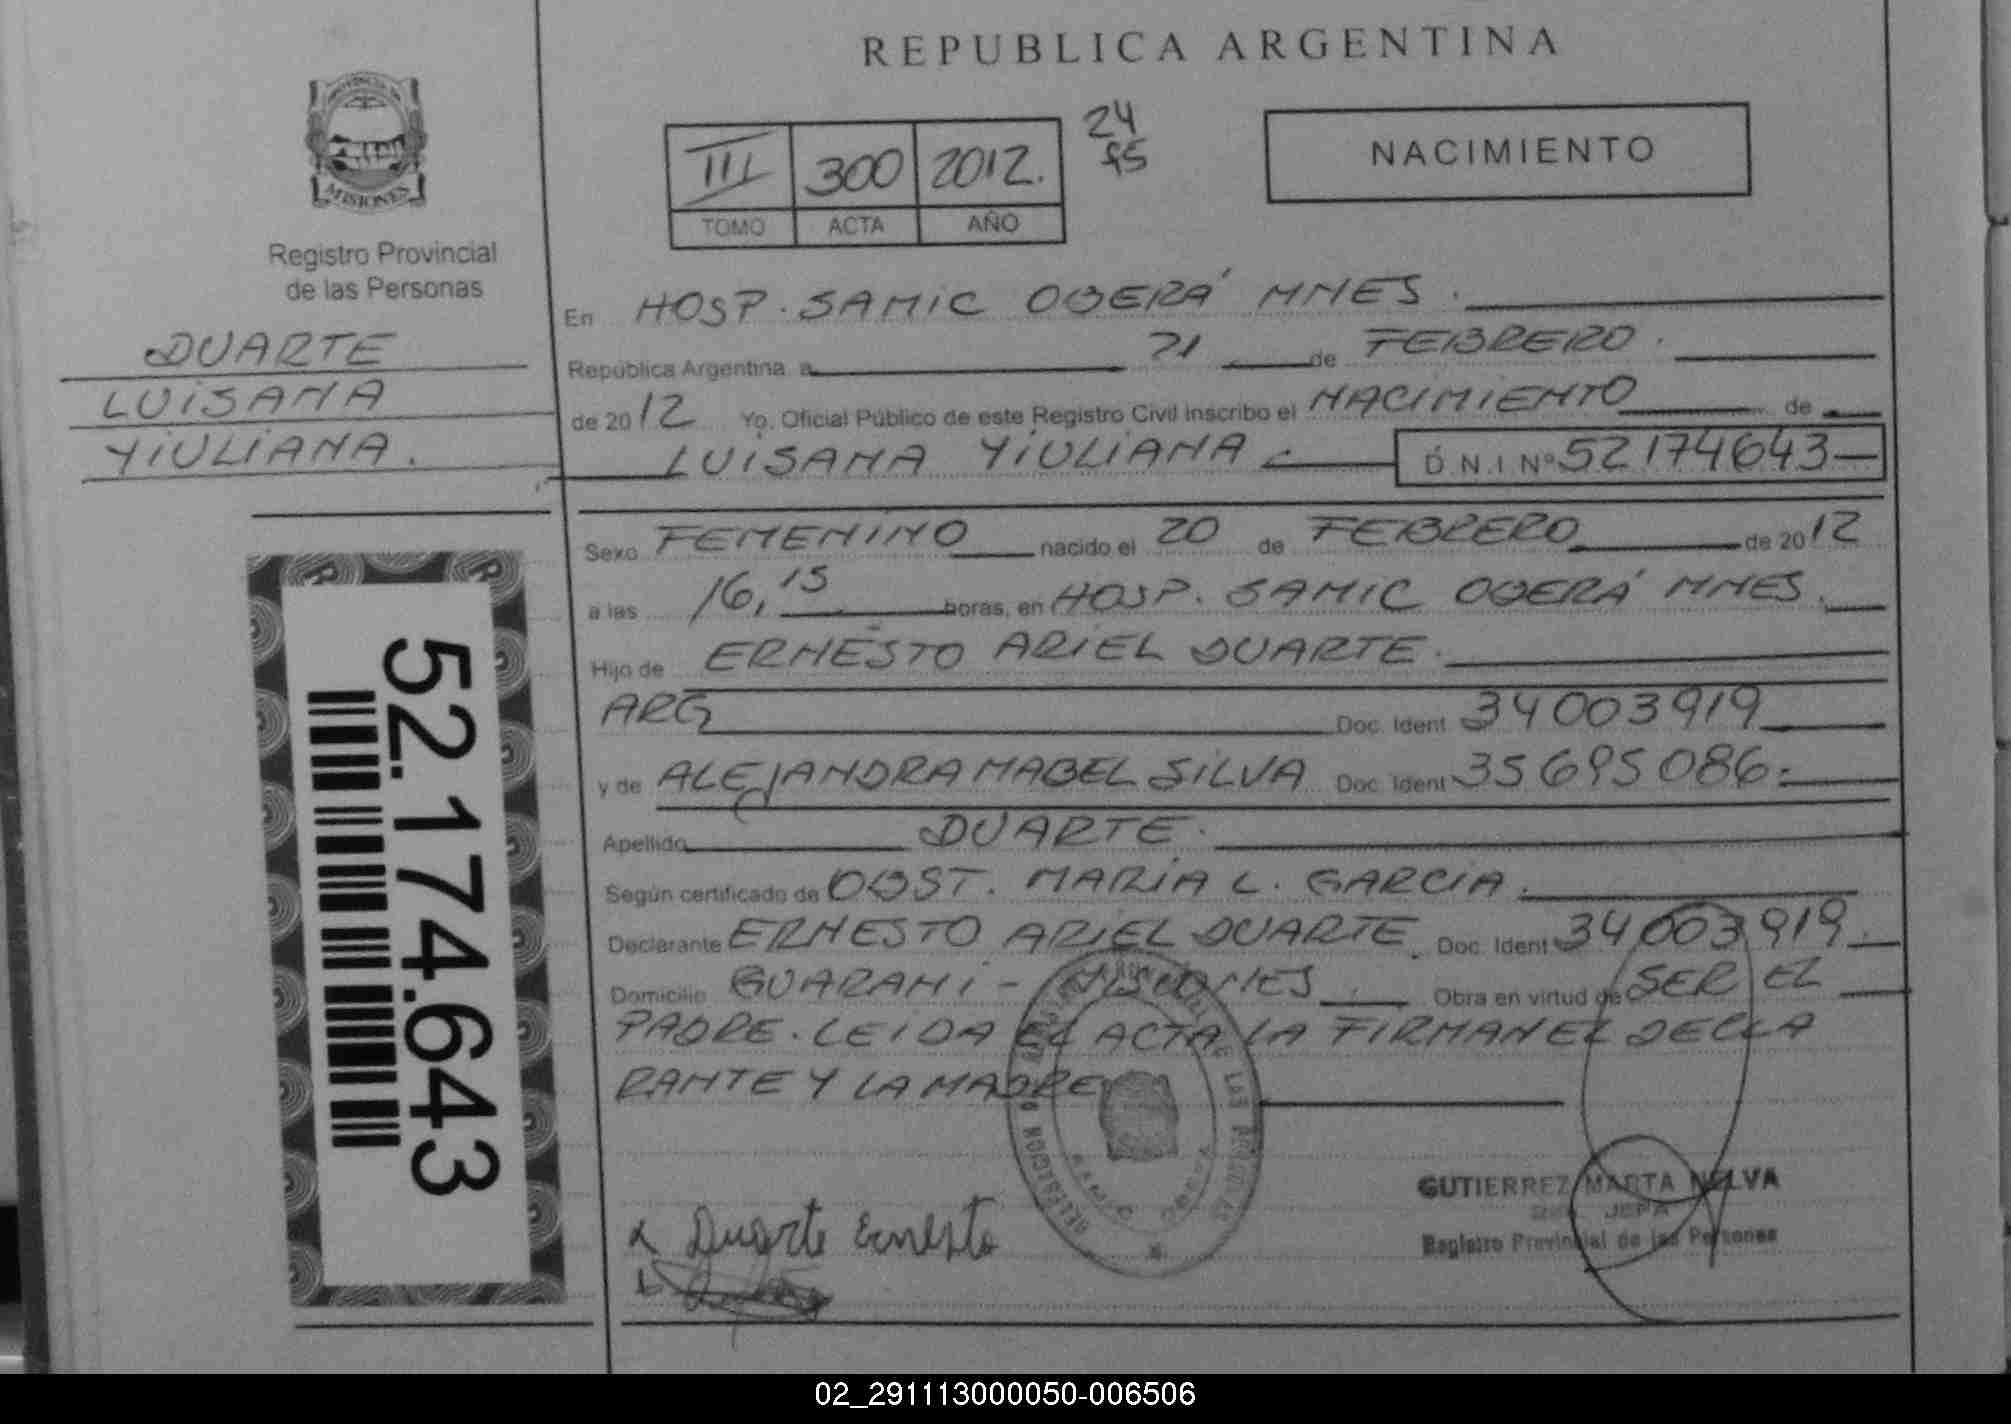 REPUBLICA ARGENTINA
PROVINCIA DE
MISIONES
Registro Provincial
de las Personas
DUARTE
LUISANA
YIULIANA.
52.174.643
III 300 2012.
TOMO ACTA AÑO
24
NACIMIENTO
En HOSP. SAMIC OBERÁ MNES.
República Argentina a 21 de FEBRERO.
de 2012 Yo, Oficial Público de este Registro Civil inscribo el NACIMIENTO de
LUISANA YIULIANA D.N.I Nº 52174643
Sexo FEMENINO nacido el 20 de FEBRERO de 2012
a las 16,15 horas, en HOSP. SAMIC OBERÁ MNES.
Hijo de ERNESTO ARIEL DUARTE.
ARG Doc. Ident 34003919
y de ALEJANDRA MABEL SILVA Doc. Ident 35695086.
Apellido DUARTE.
Según certificado de OBST. MARIA L. GARCIA.
Declarante ERNESTO ARIEL DUARTE. Doc. Ident 34003919
Domicilio GUARANI - MISIONES Obra en virtud de SER EL
PADRE. LEIDA EL ACTA LA FIRMAN EL DECLA
RANTE Y LA MADRE
GUTIERREZ MARTA NELVA
JEFA
Registro Provincial de las Personas
x Duarte Ernesto
02_291113000050-006506